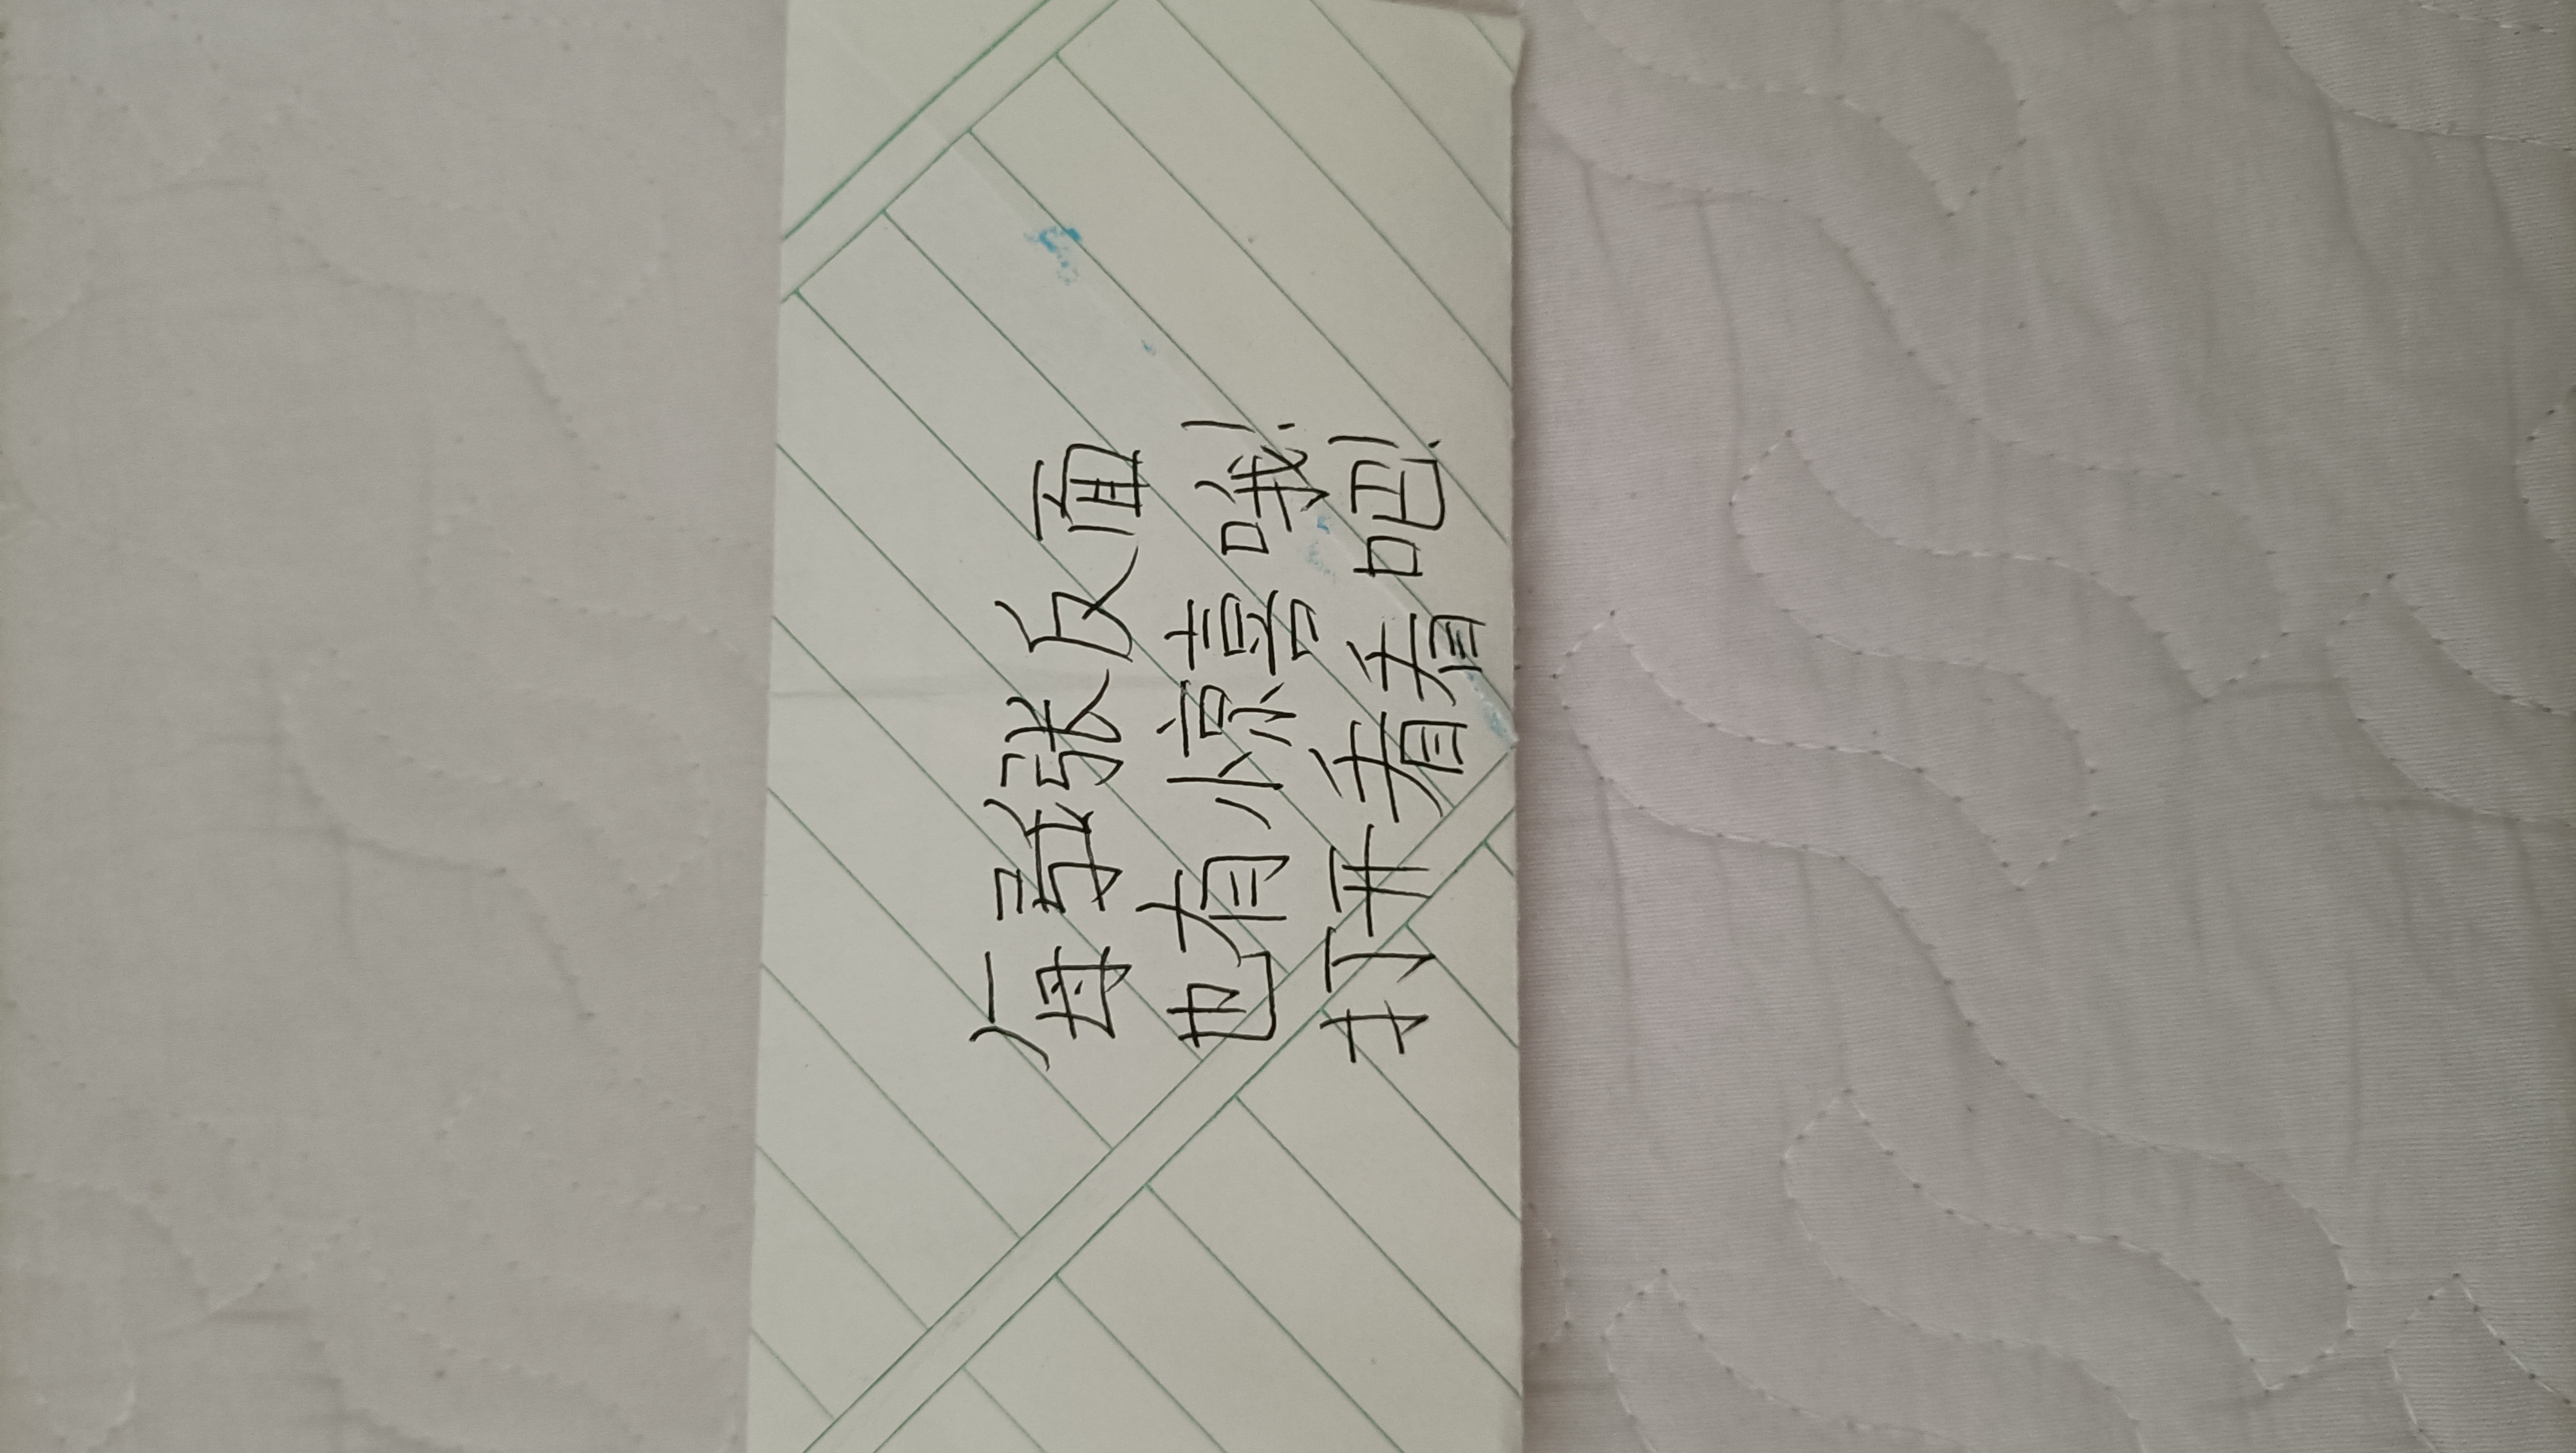 每张张反面
也有惊喜哦!
打开看看吧!